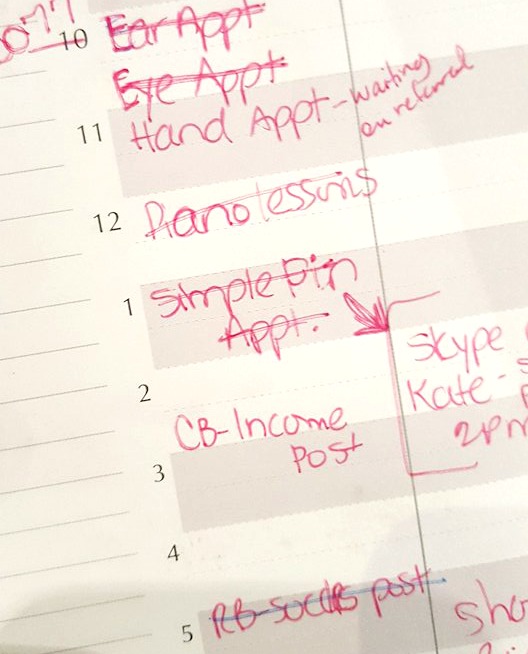 10 Ear Appt
Eye Appt
11 Hand Appt - waiting
on referral
12 Piano lessons
1 Simple Pin
Appt.
2
Skype
Kate -
2pm
CB-Income
Post
3
4
5 RB-socks post
sho